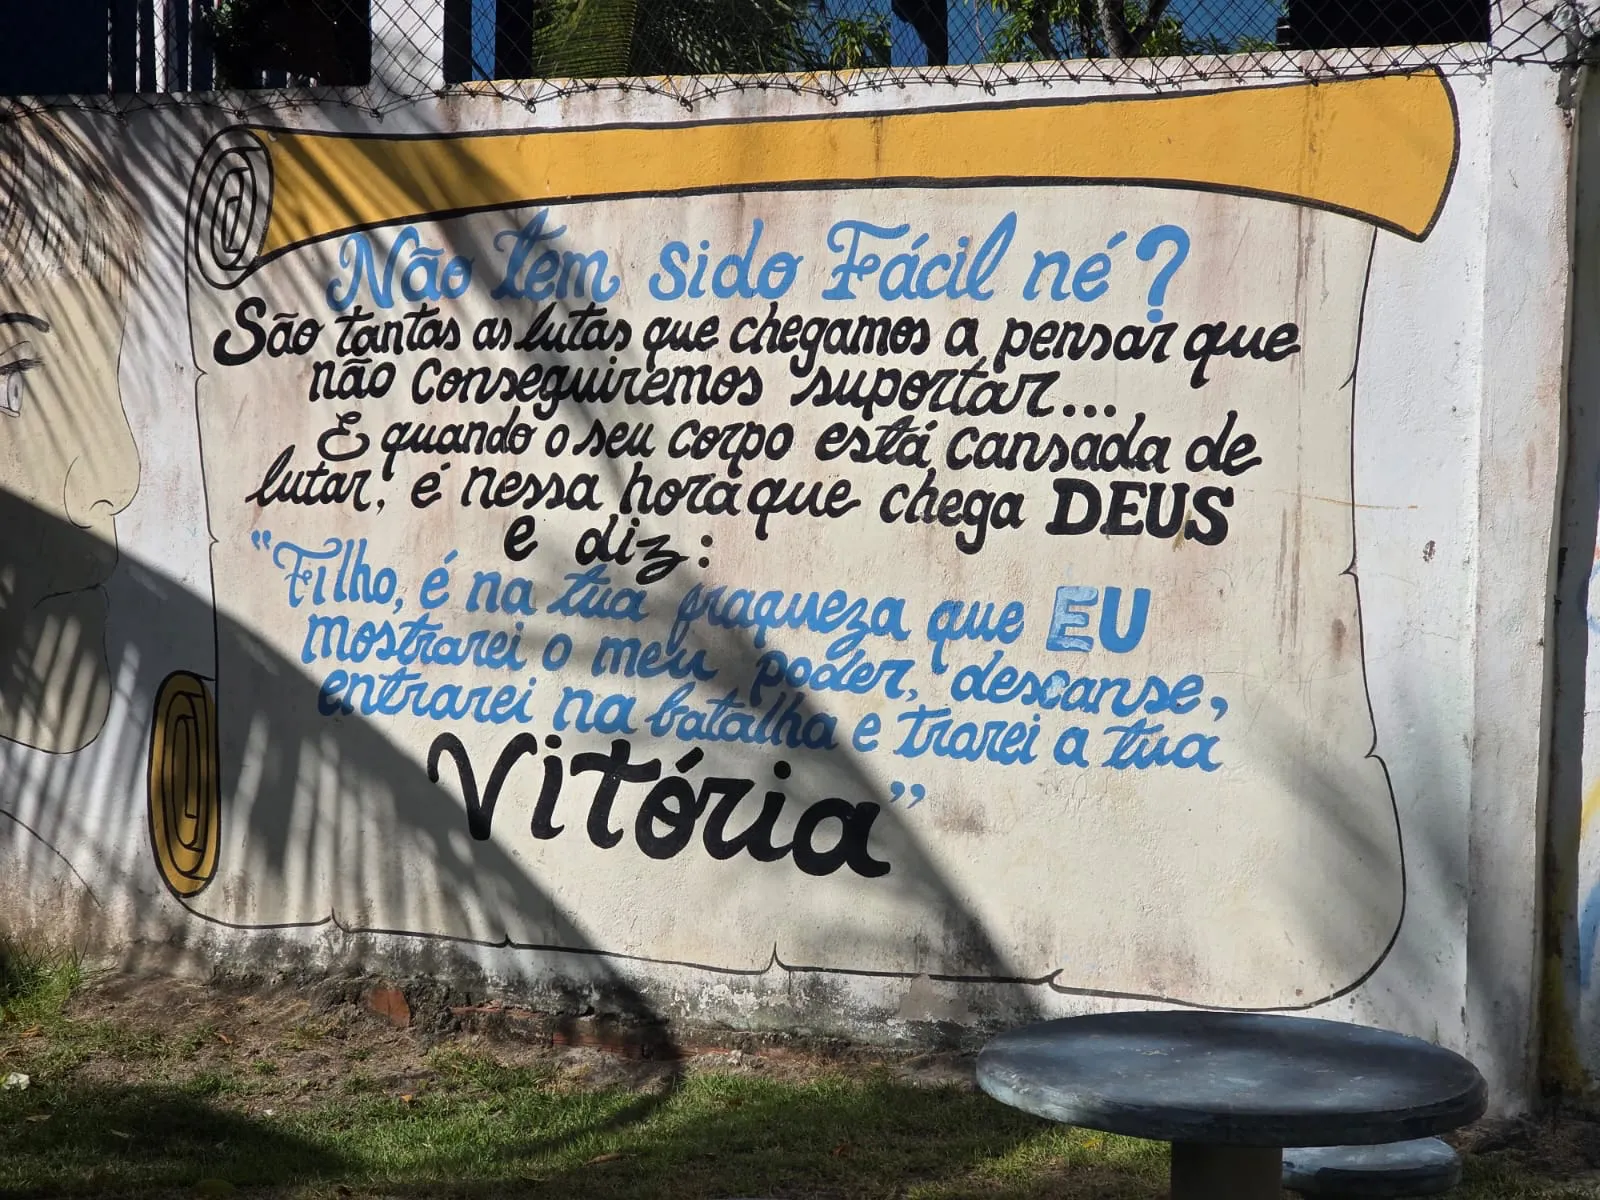 Não tem sido Fácil né?
São tantas as lutas que chegamos a pensar que
não conseguiremos suportar...
E quando o seu corpo está cansada de
lutar, é nessa hora que chega DEUS
e diz:
"Filho, é na tua fraqueza que EU
mostrarei o meu poder, descanse,
entrarei na batalha e trarei a tua
Vitória"